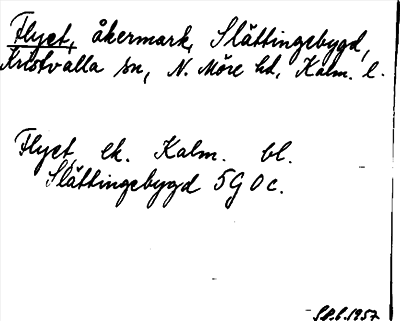 Flyet, åkermark, Slättingebygd,
Kristvalla sn, N. Möre hd, Kalm. l.
Flyet, ek. Kalm. bl.
Slättingebygd 5G 0c.
1957